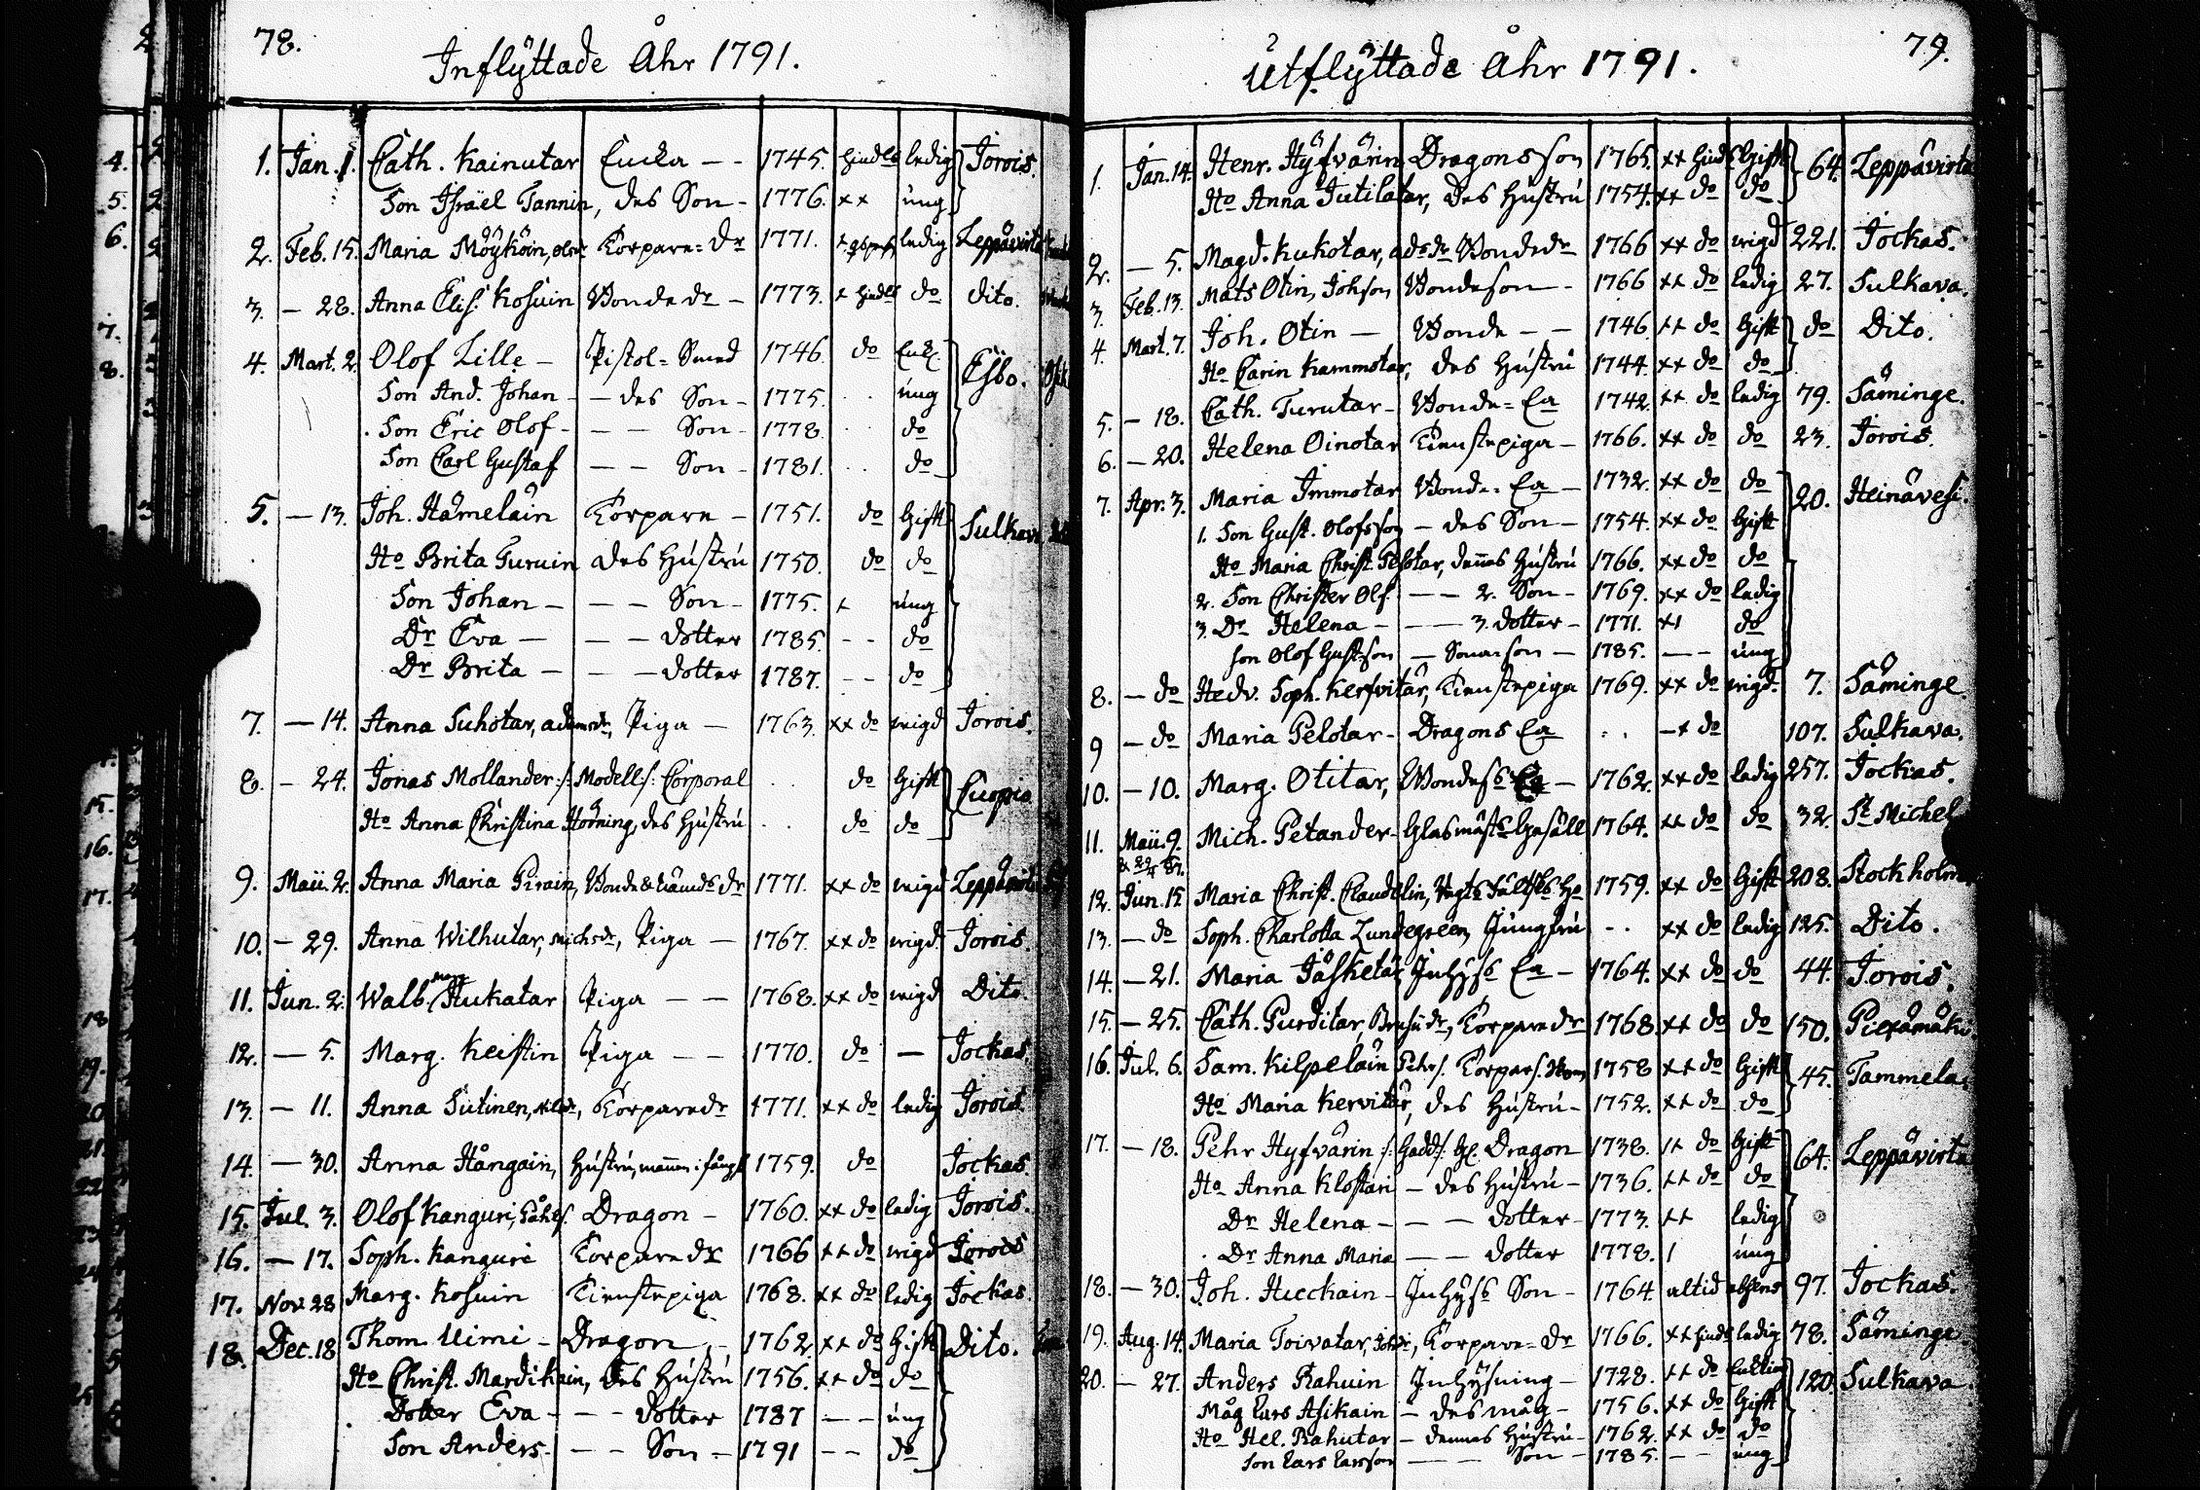 78.
Inflyttade Åhr 1791.
1. Jan. 1. Cath. Kainutar Encka – – 1745. hindls ledig Jorois.
Son Israel Tannin, des Son – 1776. ×× ung
2. Feb. 15. Maria Möyköin, Torpare = Dr 1771. ledig Leppävirta
3. – 28. Anna Elis. Kosuin Bonde Dr – 1773. + hindls do dito.
4. Mart. 2. Olof Lille – Pistol = Smed 1746. do Enkl. Esbo.
Son And. Johan – – des Son – 1775. . . ung
Son Eric Olof – – – Son – 1778 . . do
Son Carl Gustaf – – Son – 1781. . . do
5. – 13. Joh. Hämeläin Torpare – 1751. do Gift Sulkava
Ho Brita Turuin des Hustru 1750. do do
Son Johan – – – Son – 1775. + ung
Dr Eva – – – dotter 1785. – – do
Dr Brita – – – dotter 1787. – – do
7. – 14. Anna Suhotar, adamsdr, Piga – 1763. ×× do wigd Jorois.
8. – 24. Jonas Mollander :/: Modell :/: Corporal . . do Gift Cuopio
Ho Anna Christina Horning, des Hustru . . do do
9. Maii. 2. Anna Maria Pirain, Bonde & Nämds Dr 1771. ×× do wigd Leppävirta
10. – 29. Anna Wilhutar, Michsdr, Piga – 1767. ×× do wigd Jorois.
11. Jun. 2. Walb. Marg Hukatar Piga – – 1768. ×× do wigd Dito.
12. – 5. Marg. Keistin Piga – – 1770. do – Jockas.
13. – 11. Anna Sutinen, Torparedr 1771. ×× do ledig Jorois.
14. – 30. Anna Hångain, Hustru, mannen i fängs 1759. do Jockas.
15. Jul. 3. Olof Kanguri, Dragon – 1760. ×× do ledig Jorois.
16. – 17. Soph. Kanguri Torparedr 1766 ×× do wigd Jorois
17. Nov. 28 Marg. Kosuin Tienstepiga 1768. ×× do ledig Jockas.
18. Dec. 18 Thom. Uimi – Dragon – 1762. ×× do Gift Dito.
Ho Christ. Mardikain, des Hustru 1756. ×× do do
Dotter Eva – – – dotter 1787 – – ung
Son Anders – – – Son – 1791 – – do
79.
Utflyttade Åhr 1791.
1. Jan. 14. Henr. Hyfvärin Dragons son 1765. ×× hindl Gift 64. Leppävirta
Ho Anna Jutilatar, des Hustru 1754. ×× do do
2. – 5. Magd. Kukotar, adsdr Bondedr 1766 ×× do wigd 221. Jockas.
3. Feb. 13. Mats Otin, Johson Bondeson – 1766 ×× do ledig 27. Sulkava.
4. Mart. 7. Joh. Otin – Bonde – – 1746 ×× do Gift do Dito.
Ho Carin Kammotar, des Hustru 1744. ×× do do
5. – 18. Cath. Turutar – Bonde = Ea 1742. ×× do ledig 79. Säminge.
6. – 20. Helena Oinotar Tienstepiga – 1766. ×× do do 23. Jorois.
7. Apr. 3. Maria Immotar Bonde = Ea – 1732. ×× do do 20. Heinävesi.
1. Son Gust. Olofsson – des Son – 1754. ×× do Gift
Ho Maria Christ. Pelotar, dennes Hustru 1766. ×× do do
2. Son Christer Olf – – 2. Son – 1769. ×× do ledig
3. Dr Helena – – – 3. dotter – 1771. ×1 do
Son Olof Gustson – Sonason – 1785. – – ung
8. – do Hedv. Soph. Kerfvitär, Tienstepiga 1769. ×× do wigd. 7. Säminge.
9 – do Maria Pelotar – Dragons Ea . . – × do 107. Sulkava.
10. – 10. Marg. Otitar, Bondes Ea – 1762. ×× do ledig 257. Jockas.
11. Maii. 9. Mich. Petander – Glasmästs Gesäll 1764. ×× do do 32. St Michel
12. Jun. 15. Maria Christ. Claudelin, Ho 1759. ×× do Gift 208. Stockholm
13. – do Soph. Charlotta Lundegreen, Jungfru . . ×× do ledig 125. Dito.
14. – 21. Maria Jäsketär, Inhyss Ea – 1764. ×× do do 44. Jorois.
15. – 25. Cath. Purditar, Torparedr 1768. ×× do do 150. Piexämäki
16. Jul. 6. Sam. Kilpeläin 1758 ×× do Gift 45. Tammela.
Ho Maria Kervitär, des Hustru – 1752. ×× do do
17. – 18. Pehr Hyfvärin :/: Gadd :/: Dragon 1738. ×× do Gift 64. Leppävirta
Ho Anna Klostari – des Hustru – 1736. ×× do do
Dr Helena – – – dotter – 1773. ×× ledig
Dr Anna Maria – – dotter 1778. 1 ung
18. – 30. Joh. Hieckain – Inhyss Son – 1764. altid absens 97. Jockas.
19. Aug. 14. Maria Toivatar, Torpare = Dr 1766. ×× hindls ledig 78. Säminge
20. – 27. Anders Rahuin Inhysning – 1728. ×× do Enkling 120. Sulkava.
Måg Lars Asikain – des måg – 1756. ×× do Gift
Ho Hel. Rahutar – dennes Hustru – 1762. ×× do do
Son Lars Larsson – – – Son – 1785. – – ung